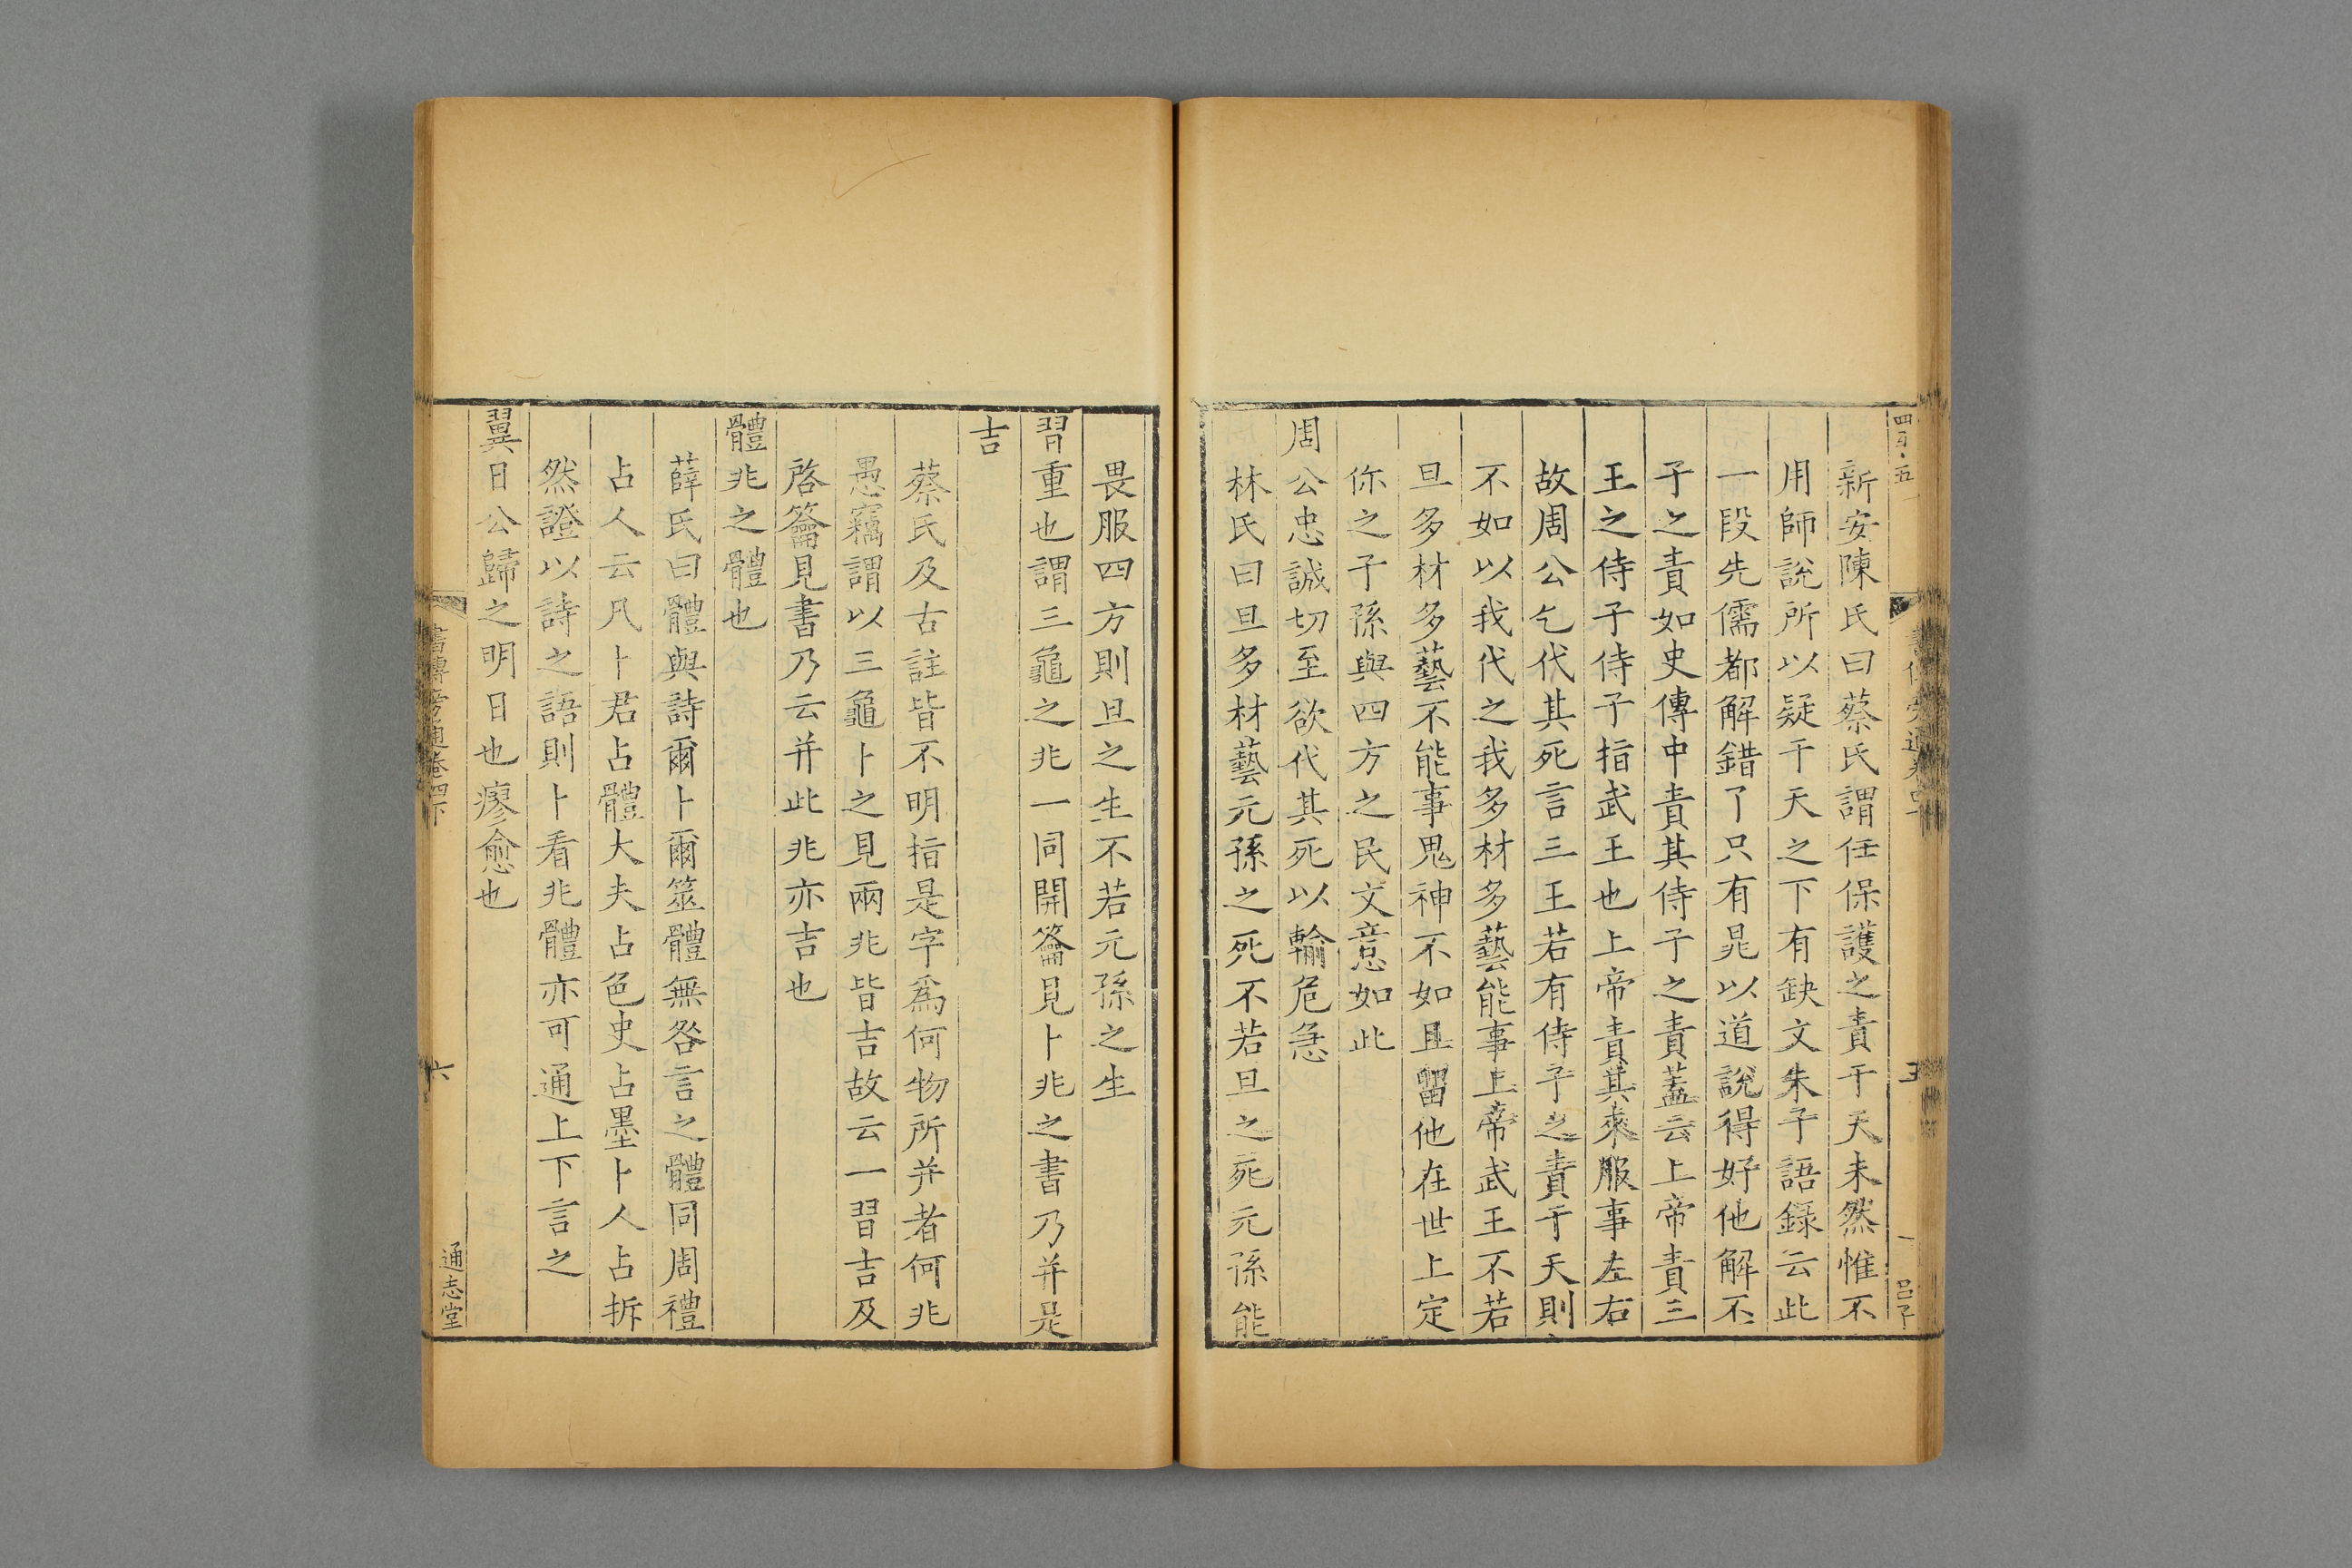 新安陳氏曰蔡氏謂任保護之責于天未然惟不
用師說所以疑于天之下有缺文朱子語録云此
一段先儒都解錯了只有晁以道說得好他解丕
子之責如史傳中責其侍子之責蓋云上帝責三
王之侍子侍子指武王也上帝責其來服事左右
故周公乞代其死言三王若有侍子之責于天則
不如以我代之我多材多藝能事上帝武王不若
旦多材多藝不能事鬼神不如且留他在世上定
你之子孫與四方之民文意如此
周公忠誠切至欲代其死以輸危急
林氏曰旦多材藝元孫之死不若旦之死元孫能
畏服四方則旦之生不若元孫之生
習重也謂三龜之兆一同開籥見卜兆之書乃并是
吉
蔡氏及古註皆不明指是字爲何物所并者何兆
愚竊謂以三龜卜之見兩兆皆吉故云一習吉及
啓籥見書乃云并此兆亦吉也
體兆之體也
薛氏曰體與詩爾卜爾筮體無咎言之體同周禮
占人云凡卜君占體大夫占色史占墨卜人占拆
然證以詩之語則卜看兆體亦可通上下言之
翼日公歸之明日也瘳愈也
書傳旁通卷四下
六
通志堂